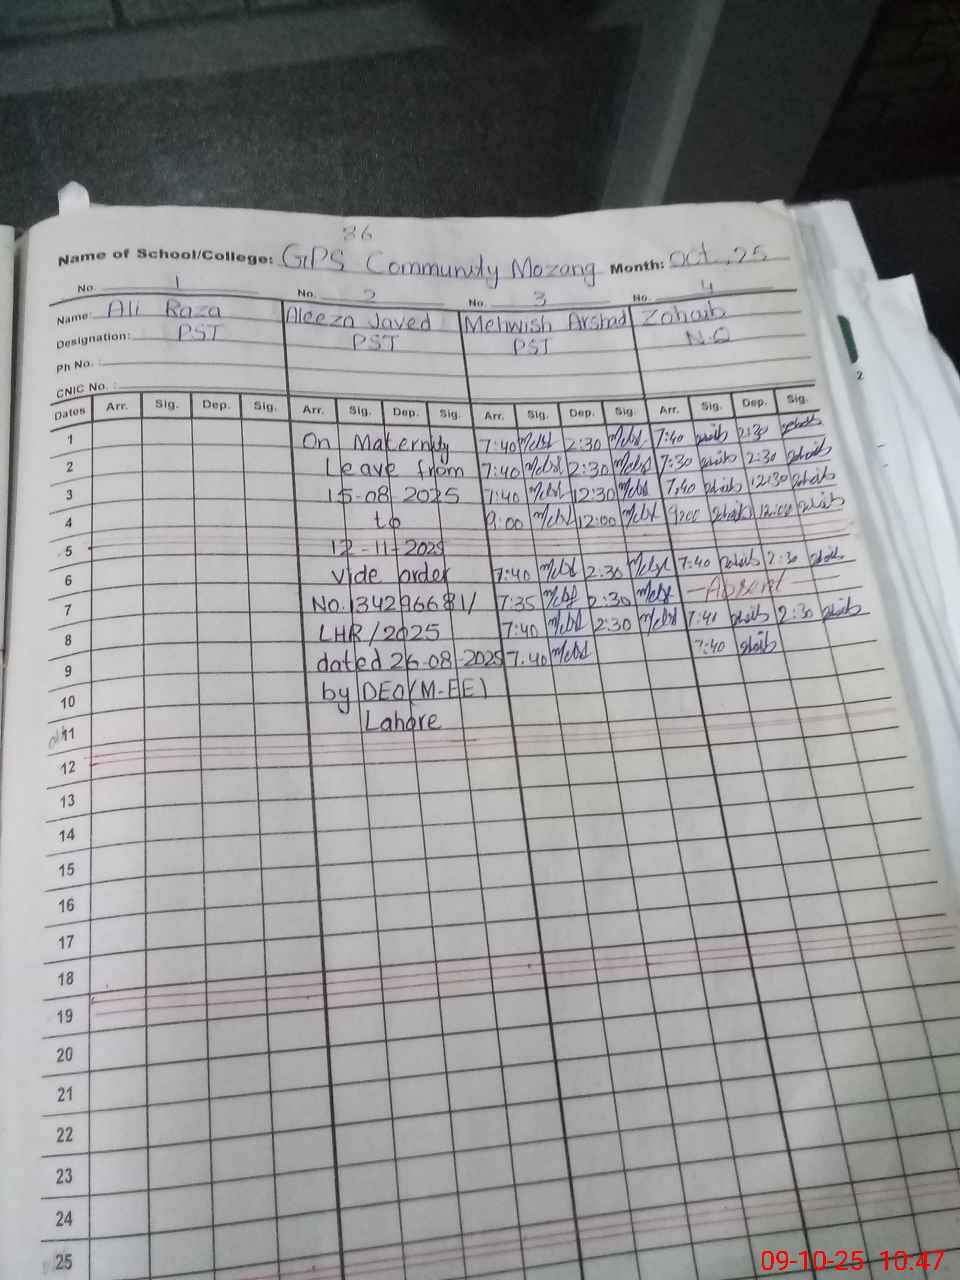 36
Name of School/College: GPS Community Mozang Month: Oct, 25
No. 1 No. 2 No. 3 No. 4
Name: Ali Raza Aleeza Javed Mehwish Arshad Zohaib
Designation: PST PST PST N.Q
Ph No. :
CNIC No. :
Dates Arr. Sig. Dep. Sig. Arr. Sig. Dep. Sig. Arr. Sig. Dep. Sig. Arr. Sig. Dep. Sig.
1 On Maternity 7:40 2:30 7:40 Zohaib 2:30 Zohaib
2 Leave from 7:40 2:30 7:30 Zohaib 2:30 Zohaib
3 15-08 2025 7:40 12:30 7:40 Zohaib 12:30 Zohaib
4 to 9:00 12:00 9:00 Zohaib 12:00 Zohaib
5 12-11-2025
6 vide order 7:40 2:30 7:40 Zohaib 2:30 Zohaib
7 No.134296681/ 7:35 2:30 Absent
8 LHR/2025 7:40 2:30 7:40 Zohaib 2:30 Zohaib
9 dated 26-08-2025 7:40 7:40 Zohaib
10 by DEO(M-EE)
11 Lahore
12
13
14
15
16
17
18
19
20
21
22
23
24
25
2
09-10-25 10:47